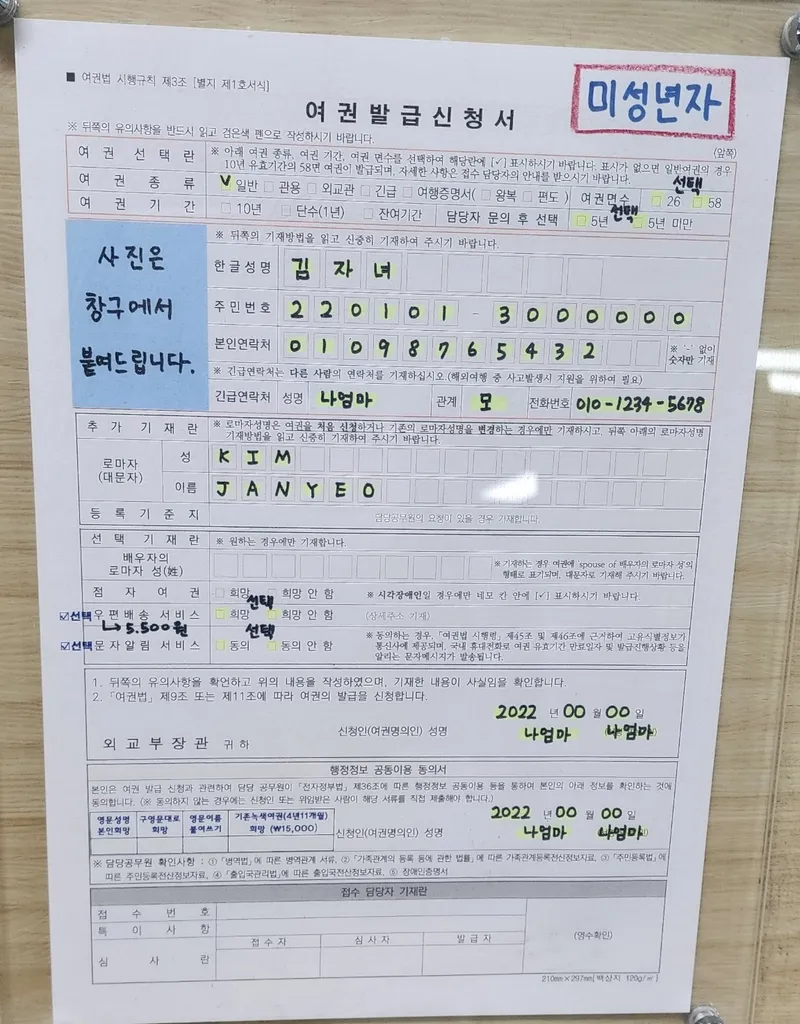 ■ 여권법 시행규칙 제3조 [별지 제1호서식]
미성년자
여권발급신청서
※ 뒤쪽의 유의사항을 반드시 읽고 검은색 펜으로 작성하시기 바랍니다.
(앞쪽)
여 권 선 택 란 ※ 아래 여권 종류, 여권 기간, 여권 면수를 선택하여 해당란에 [✓] 표시하시기 바랍니다. 표시가 없으면 일반여권의 경우
10년 유효기간의 58면 여권이 발급되며, 자세한 사항은 접수 담당자의 안내를 받으시기 바랍니다.
여 권 종 류 V 일반 □ 관용 □ 외교관 □ 긴급 □ 여행증명서(□ 왕복 □ 편도) 여권면수 □ 26 선택 □ 58
여 권 기 간 □ 10년 □ 단수(1년) □ 잔여기간 담당자 문의 후 선택 □ 5년 선택 □ 5년 미만
사진은
창구에서
붙여드립니다.
※ 뒤쪽의 기재방법을 읽고 신중히 기재하여 주시기 바랍니다.
한글성명 김 자 녀
주민번호 2 2 0 1 0 1 - 3 0 0 0 0 0 0
본인연락처 0 1 0 9 8 7 6 5 4 3 2
※ '-' 없이
숫자만 기재
※ 긴급연락처는 다른 사람의 연락처를 기재하십시오.(해외여행 중 사고발생시 지원을 위하여 필요)
긴급연락처 성명 나엄마 관계 모 전화번호 010-1234-5678
추 가 기 재 란 ※ 로마자성명은 여권을 처음 신청하거나 기존의 로마자성명을 변경하는 경우에만 기재하시고, 뒤쪽 아래의 로마자성명
기재방법을 읽고 신중히 기재하여 주시기 바랍니다.
로마자
(대문자)
성 K I M
이름 J A N Y E O
등 록 기 준 지 담당공무원의 요청이 있을 경우 기재합니다.
선 택 기 재 란 ※ 원하는 경우에만 기재합니다.
배우자의
로마자 성(姓)
※ 기재하는 경우 여권에 spouse of 배우자의 로마자 성의
형태로 표기되며, 대문자로 기재해 주시기 바랍니다.
점 자 여 권 □ 희망 □ 희망 안 함 ※ 시각장애인일 경우에만 네모 칸 안에 [✓] 표시하시기 바랍니다.
☑선택 우 편 배 송 서 비 스 □ 희망 선택 □ 희망 안 함 (상세주소 기재)
↳ 5.500원
☑선택 문 자 알 림 서 비 스 □ 동의 선택 □ 동의 안 함
※ 동의하는 경우, 「여권법 시행령」 제45조 및 제46조에 근거하여 고유식별정보가
통신사에 제공되며, 국내 휴대전화로 여권 유효기간 만료일자 및 발급진행상황 등을
알리는 문자메시지가 발송됩니다.
1. 뒤쪽의 유의사항을 확인하고 위의 내용을 작성하였으며, 기재한 내용이 사실임을 확인합니다.
2. 「여권법」 제9조 또는 제11조에 따라 여권의 발급을 신청합니다.
2022 년 00 월 00 일
신청인(여권명의인) 성명 나엄마 나엄마
외 교 부 장 관 귀 하
행정정보 공동이용 동의서
본인은 여권 발급 신청과 관련하여 담당 공무원이 「전자정부법」 제36조에 따른 행정정보 공동이용 등을 통하여 본인의 아래 정보를 확인하는 것에
동의합니다. (※ 동의하지 않는 경우에는 신청인 또는 위임받은 사람이 해당 서류를 직접 제출해야 합니다.)
영문성명 본인희망 구영문대로 희망 영문이름 붙여쓰기 기존녹색여권(4년11개월) 희망 (₩15,000)
2022 년 00 월 00 일
신청인(여권명의인) 성명 나엄마 나엄마
※ 담당공무원 확인사항 : ① 「병역법」에 따른 병역관계 서류, ② 「가족관계의 등록 등에 관한 법률」에 따른 가족관계등록전산정보자료, ③ 「주민등록법」에
따른 주민등록전산정보자료, ④ 「출입국관리법」에 따른 출입국전산정보자료, ⑤ 장애인증명서
접수 담당자 기재란
접 수 번 호
특 이 사 항
심 사 란 접 수 자 심 사 자 발 급 자
(영수확인)
210㎜×297㎜[백상지 120g/㎡]